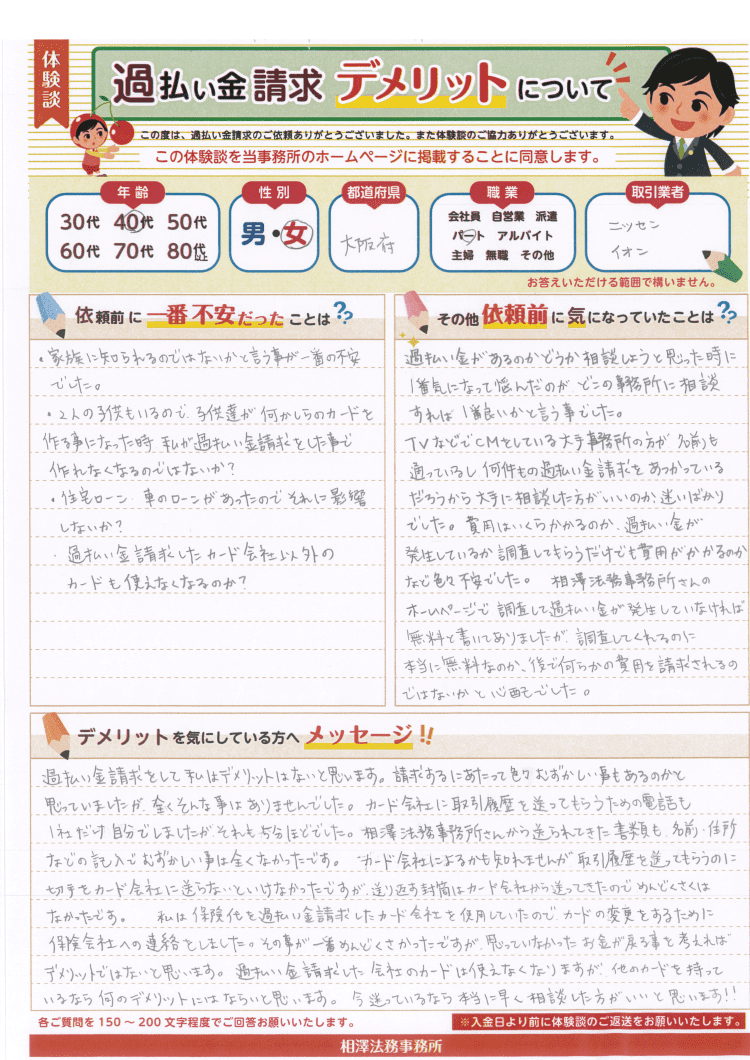 体験談
過払い金請求 デメリットについて
この度は、過払い金請求のご依頼ありがとうございました。また体験談のご協力ありがとうございます。
この体験談を当事務所のホームページに掲載することに同意します。
年齢
30代 40代 50代
60代 70代 80代以上
性別
男・女
都道府県
大阪府
職業
会社員 自営業 派遣
パート アルバイト
主婦 無職 その他
取引業者
ニッセン
イオン
お答えいただける範囲で構いません。
依頼前に一番不安だったことは??
・家族に知られるのではないかと言う事が一番の不安
でした。
・2人の子供もいるので、子供達が何かしらのカードを
作る事になった時 私が過払い金請求をした事で
作れなくなるのではないか?
・住宅ローン・車のローンがあったのでそれに影響
しないか?
・過払い金請求したカード会社以外の
カードも使えなくなるのか?
その他依頼前に気になっていたことは??
過払い金があるのかどうか相談しようと思った時に
1番気になって悩んだのが どこの事務所に相談
すれば1番良いかと言う事でした。
TVなどでCMをしている大手事務所の方が名前も
通っているし何件もの過払い金請求をあつかっている
だろうから大手に相談した方がいいのか、迷いばかり
でした。費用はいくらかかるのか、過払い金が
発生しているか調査してもらうだけでも費用がかかるのか
など色々不安でした。 相澤法務事務所さんの
ホームページで調査して過払い金が発生していなければ
無料と書いてありましたが、調査してくれるのに
本当に無料なのか、後で何らかの費用を請求されるの
ではないかと心配でした。
デメリットを気にしている方へメッセージ!!
過払い金請求をして私はデメリットはないと思います。請求するにあたって色々むずかしい事もあるのかと
思っていましたが、全くそんな事はありませんでした。カード会社に取引履歴を送ってもらうための電話も
1社だけ自分でしましたが、それも5分ほどでした。相澤法務事務所さんから送られてきた書類も、名前・住所
などの記入でむずかしい事は全くなかったです。 カード会社によるかも知れませんが取引履歴を送ってもらうのに
切手をカード会社に送らないといけなかったですが、送り返す封筒はカード会社から送ってきたのでめんどくさくは
なかったです。 私は保険代を過払い金請求したカード会社を使用していたので、カードの変更をするために
保険会社への連絡をしました。その事が一番めんどくさかったですが、思っていなかったお金が戻る事を考えれば
デメリットではないと思います。過払い金請求した会社のカードは使えなくなりますが、他のカードを持って
いるなら何のデメリットにはならいと思います。今迷っているなら本当に早く相談した方がいいと思います!!
各ご質問を150～200文字程度でご回答お願いいたします。
※入金日より前に体験談のご返送をお願いいたします。
相澤法務事務所